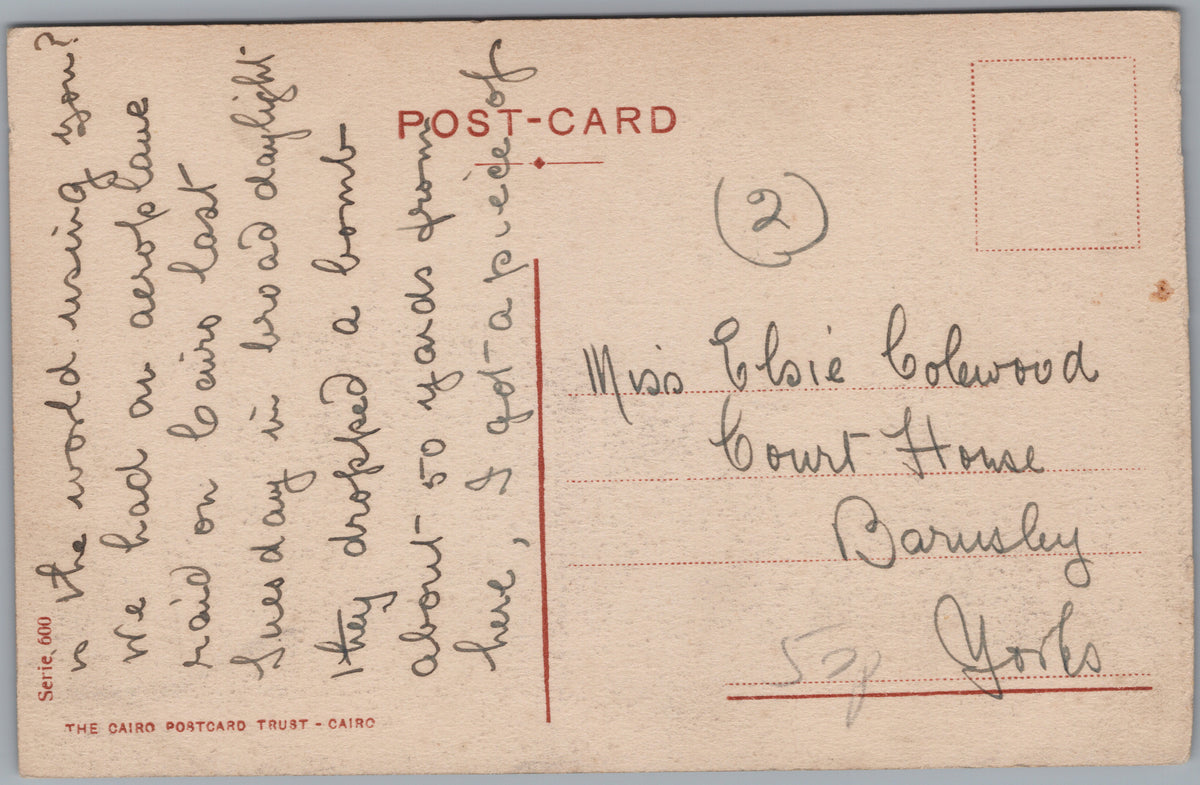 POST-CARD
(2)
is the world using you?
We had an aeroplane
raid on Cairo last
Tuesday in broad daylight
they dropped a bomb
about 50 yards from
here, I got a piece of
Miss Elsie Colewood
Court House
Barnsley
Yorks
50p
Serie, 600
THE CAIRO POSTCARD TRUST - CAIRO